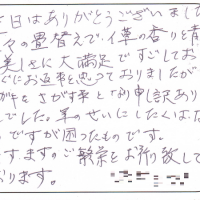 日はありがとうございました
々の畳替えで、イ草の香りと青
美しさに大満足ですごしてお
ぐにお返事を思っておりましたが
がキをさがす事と 申し訳あり
でした。年のせいにしたくはな
のですが困ったものです。
すますのご繁栄をお祈り致して
おります。